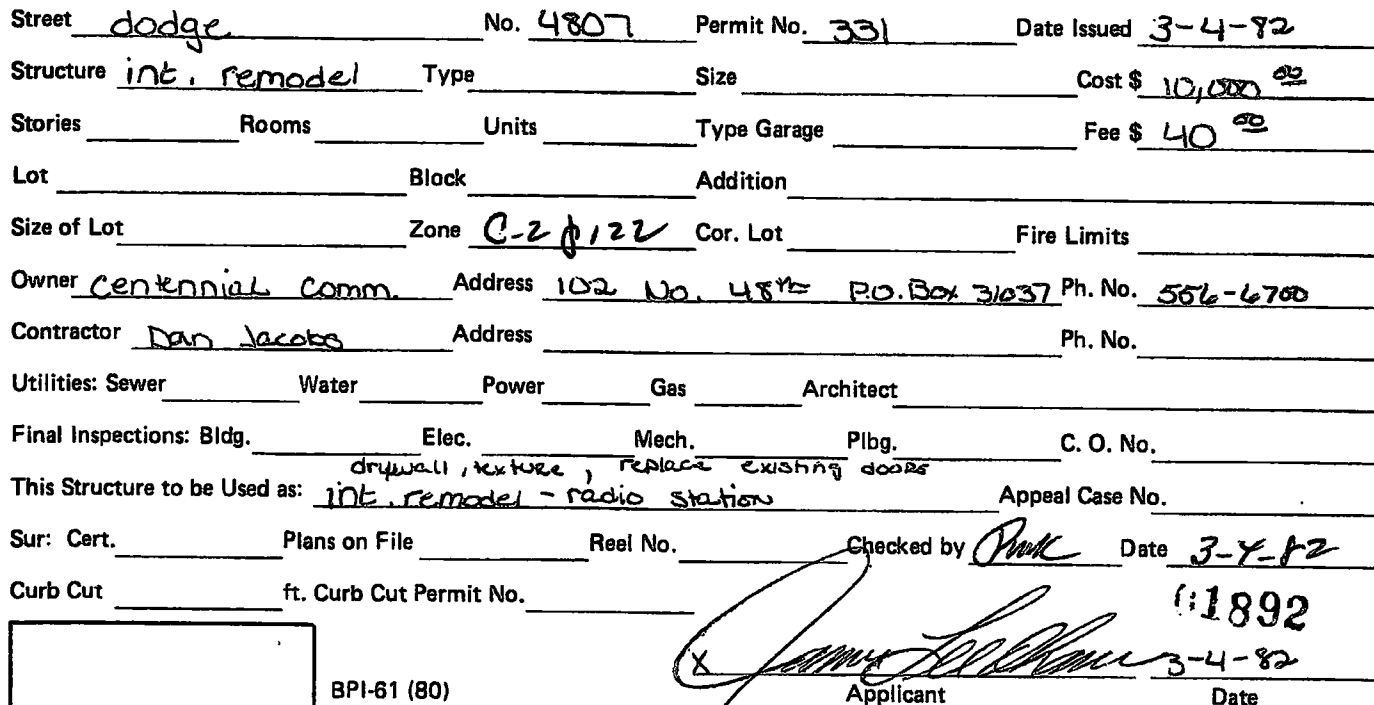 Street dodge No. 4807 Permit No. 331 Date Issued 3-4-82
Structure int. remodel Type Size Cost $ 10,000 00
Stories Rooms Units Type Garage Fee $ 40 00
Lot Block Addition
Size of Lot Zone C-2 p122 Cor. Lot Fire Limits
Owner Centennial Comm. Address 102 No. 48th P.O. Box 31037 Ph. No. 556-6700
Contractor Dan Jacobs Address Ph. No.
Utilities: Sewer Water Power Gas Architect
Final Inspections: Bldg. Elec. Mech. Plbg. C. O. No.
drywall, texture, replace existing doors
This Structure to be Used as: int. remodel - radio station Appeal Case No.
Sur: Cert. Plans on File Reel No. Checked by Date 3-4-82
Curb Cut ft. Curb Cut Permit No. 1892
X 3-4-82
BPI-61 (80) Applicant Date